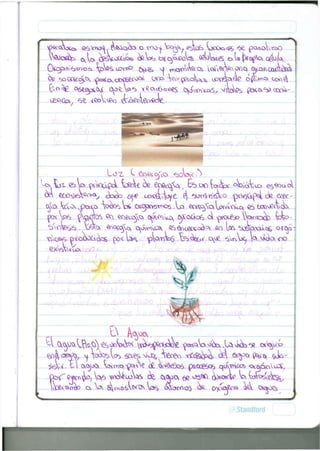 peratura es muy elevada o muy baja, estas funciones se paralizan
llevando a la destrucción de los orgánulos celulares o la propia célula.
Organismos tales como aves y mamíferos invierten una gran cantidad
de su energía para conservar una temperatura constante óptima con el
fin de asegurar que las reacciones químicas, vitales para su
se realicen
Luz (energía solar)
La luz es la principal fuente de energía. Es un factor abiótico esencial
del ecosistema, dado que constituye el suministro principal de ener-
gía para todos los organismos. La energía lumínica es convertida
por las plantas en energía química gracias al proceso llamado foto-
síntesis. Esta energía química es en las sustancias orgá-
nicas producidas por las plantas. Es decir que sin luz la vida no
existiría
El Agua
El agua (H2O) es un factor indispensable para la vida. La vida se originó
en el agua, y todos los seres vivos tienen necesidad del agua para sub-
sistir. El agua forma parte de diversos procesos químicos orgánicos,
por ejemplo, las moléculas de agua se usan durante la fotosíntesis,
liberando a la atmósfera los átomos de oxígeno del agua.
Standford